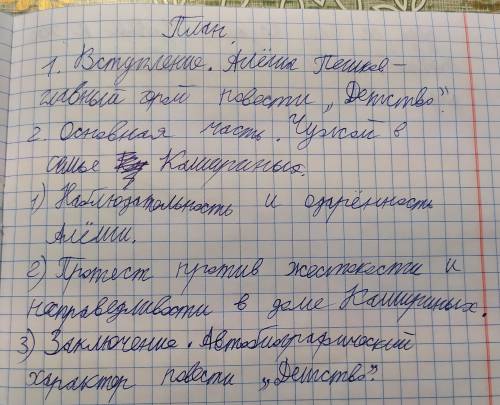 План
1. Вступление. Алёша Пешков –
главный герой повести „Детство".
2. Основная часть. Чужой в
семье Кашириных.
1) Наблюдательность и одарённость
Алёши.
2) Протест против жестокости и
несправедливости в доме Кашириных.
3) Заключение. Автобиографический
характер повести „Детство".